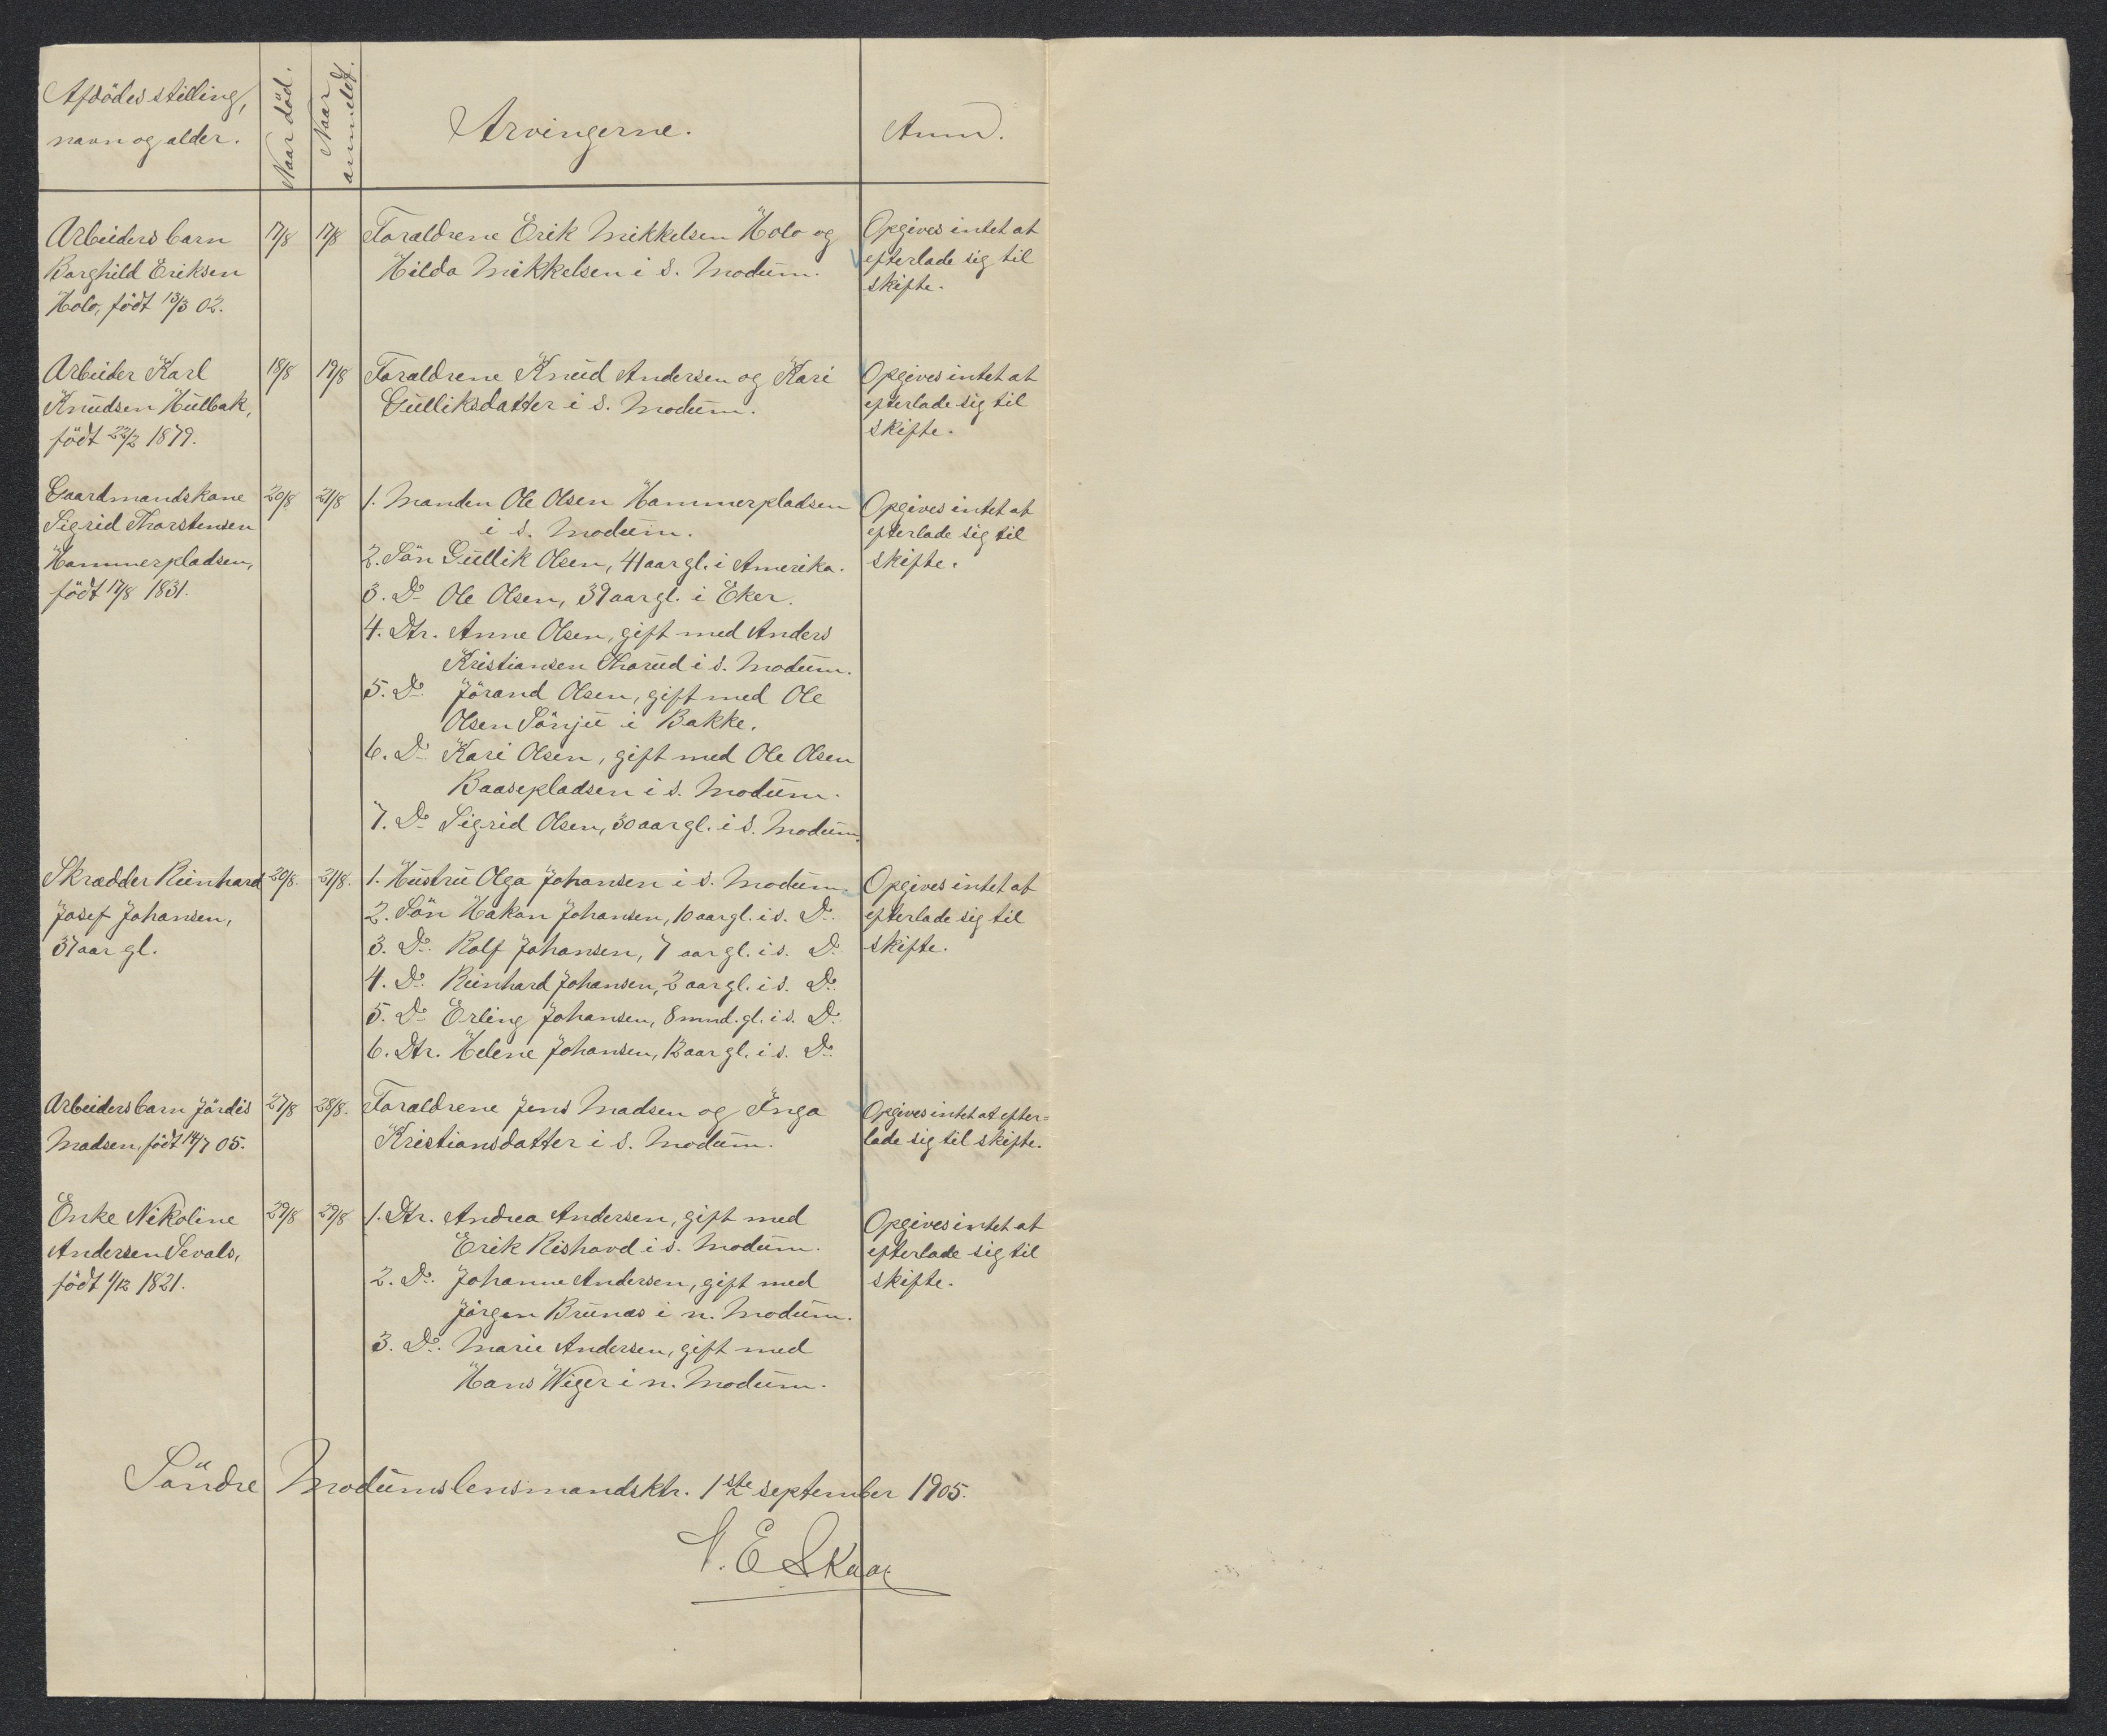 Afdödes stilling,
navn og alder.
Naar död.
Naar
anmeldt.
Arvingerne.
Anm.
Arbeiders barn
Borghild Eriksen
Holo, födt 13/3 02.
17/8
17/8
Forældrene Erik Mikkelsen Holo og
Hilda Mikkelsen i s. Modum.
Opgives intet at
efterlade sig til
skifte.
Arbeider Karl
Knudsen Hulbak,
födt 22/2 1879.
18/8
19/8
Forældrene Knud Andersen og Kari
Gulliksdatter i s. Modum.
Opgives intet at
efterlade sig til
skifte.
Gaardmandskone
Sigrid Thorstensen
Hammerpladsen,
födt 17/8 1831.
20/8
21/8
1. Manden Ole Olsen Hammerpladsen
i s. Modum.
2. Sön Gullik Olsen, 41 aar gl. i Amerika.
3. Do Ole Olsen, 39 aar gl. i Eker.
4. Dtr. Anne Olsen, gift med Anders
Kristiansen Thorud i s. Modum.
5. Do Jörand Olsen, gift med Ole
Olsen Sönju i Bakke.
6. Do Kari Olsen, gift med Ole Olsen
Baasepladsen i s. Modum.
7. Do Sigrid Olsen, 30 aar gl. i s. Modum.
Opgives intet at
efterlade sig til
skifte.
Skrædder Reinhard
Josef Johansen,
37 aar gl.
20/8.
21/8.
1. Hustru Olga Johansen i s. Modum.
2. Sön Hakon Johansen, 10 aar gl. i s. Do.
3. Do. Rolf Johansen, 7 aar gl. i s. Do
4. Do. Reinhard Johansen, 2 aar gl. i s. Do.
5. Do Erling Johansen, 8 mnd. gl. i s. Do.
6. Dtr. Helene Johansen, 12 aar gl. i s. Do.
Opgives intet at
efterlade sig til
skifte.
Arbeidersbarn Jördis
Madsen, födt 14/7 05.
27/8
28/8.
Forældrene Jens Madsen og Inga
Kristiansdatter i s. Modum.
Opgives intet at efter=
lade sig til skifte.
Enke Nikoline
Andersen Sevals,
födt 1/12 1821.
29/8
29/8
1. Dtr. Andrea Andersen, gift med
Erik Rishovd i s. Modum.
2. Do. Johanne Andersen, gift med
Jörgen Brunæs i n. Modum.
3. Do. Marie Andersen, gift med
Hans Wiger i n. Modum.
Opgives intet at
efterlade sig til
skifte.
Söndre Modums lensmandsktr. 1ste september 1905.
N. E. Skaar